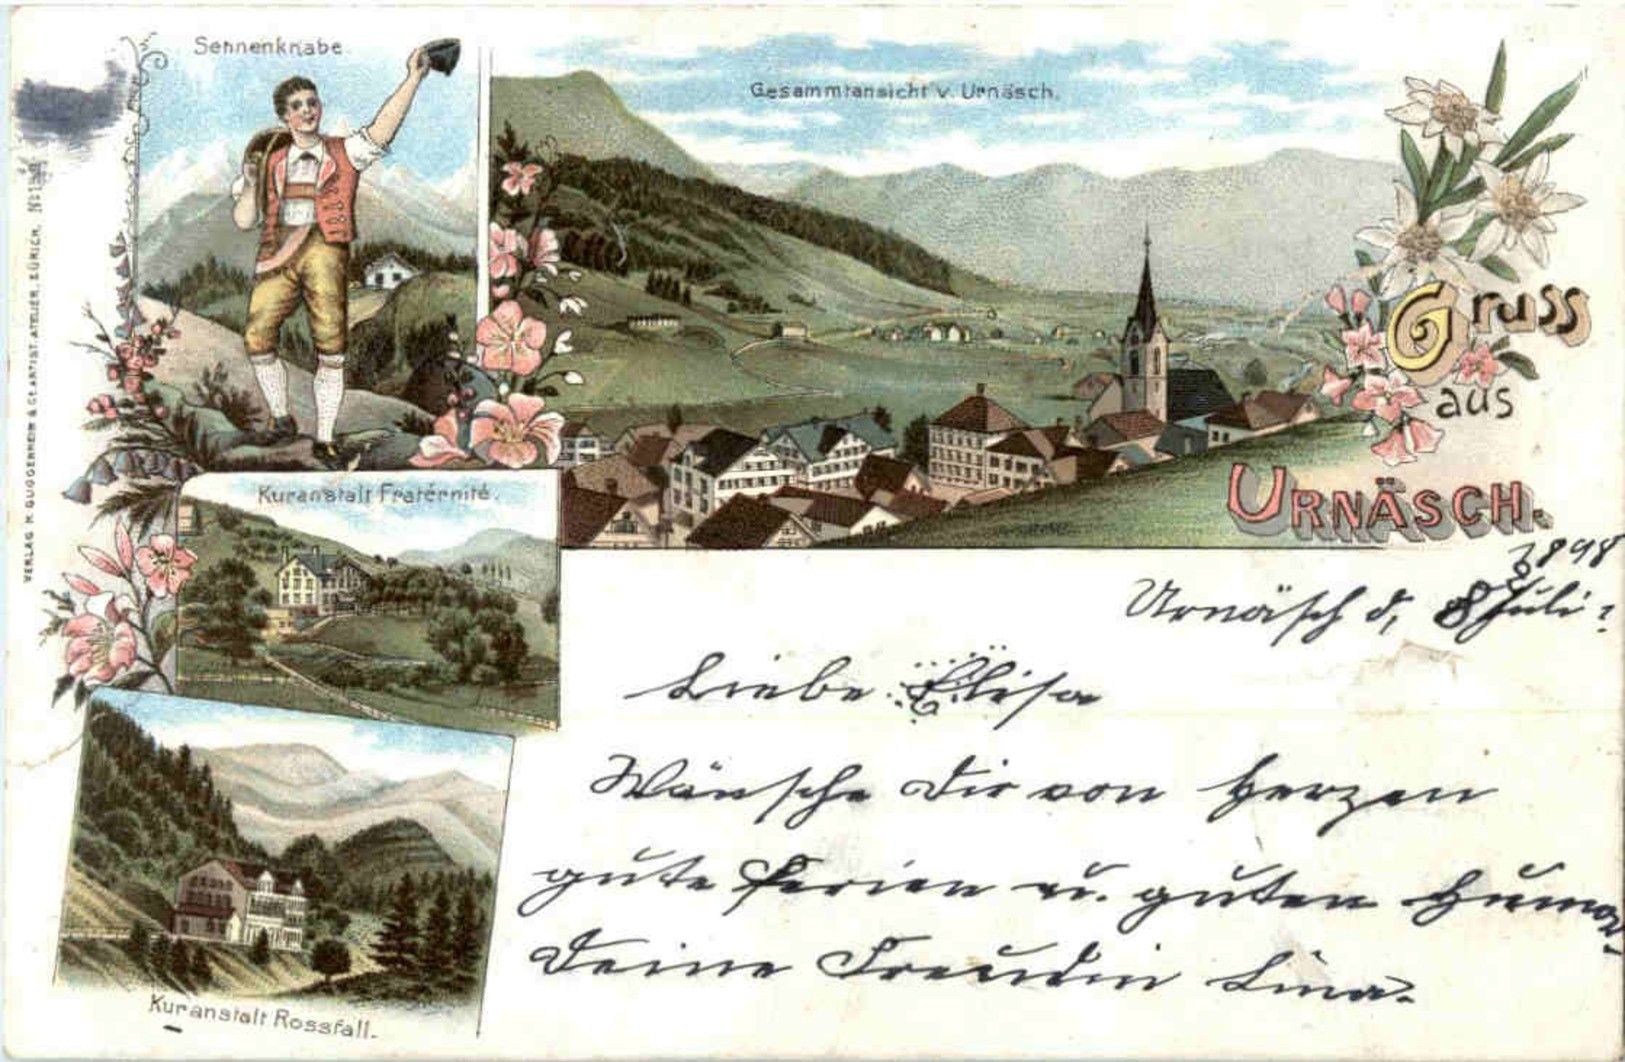 Sennenknabe.
Gesammtansicht v. Urnäsch.
Gruss
aus
URNÄSCH.
Kuranstalt Fraternité.
Kuranstalt Rossfall.
VERLAG H. GUGGENHEIM & Co. ARTIST. ATELIER, ZÜRICH.
Urnäsch d, 8 Juli
Liebe Elisa
Wünsche Dir von Herzen
gute Ferien u. guten Humor
Deine Freundin Lina.